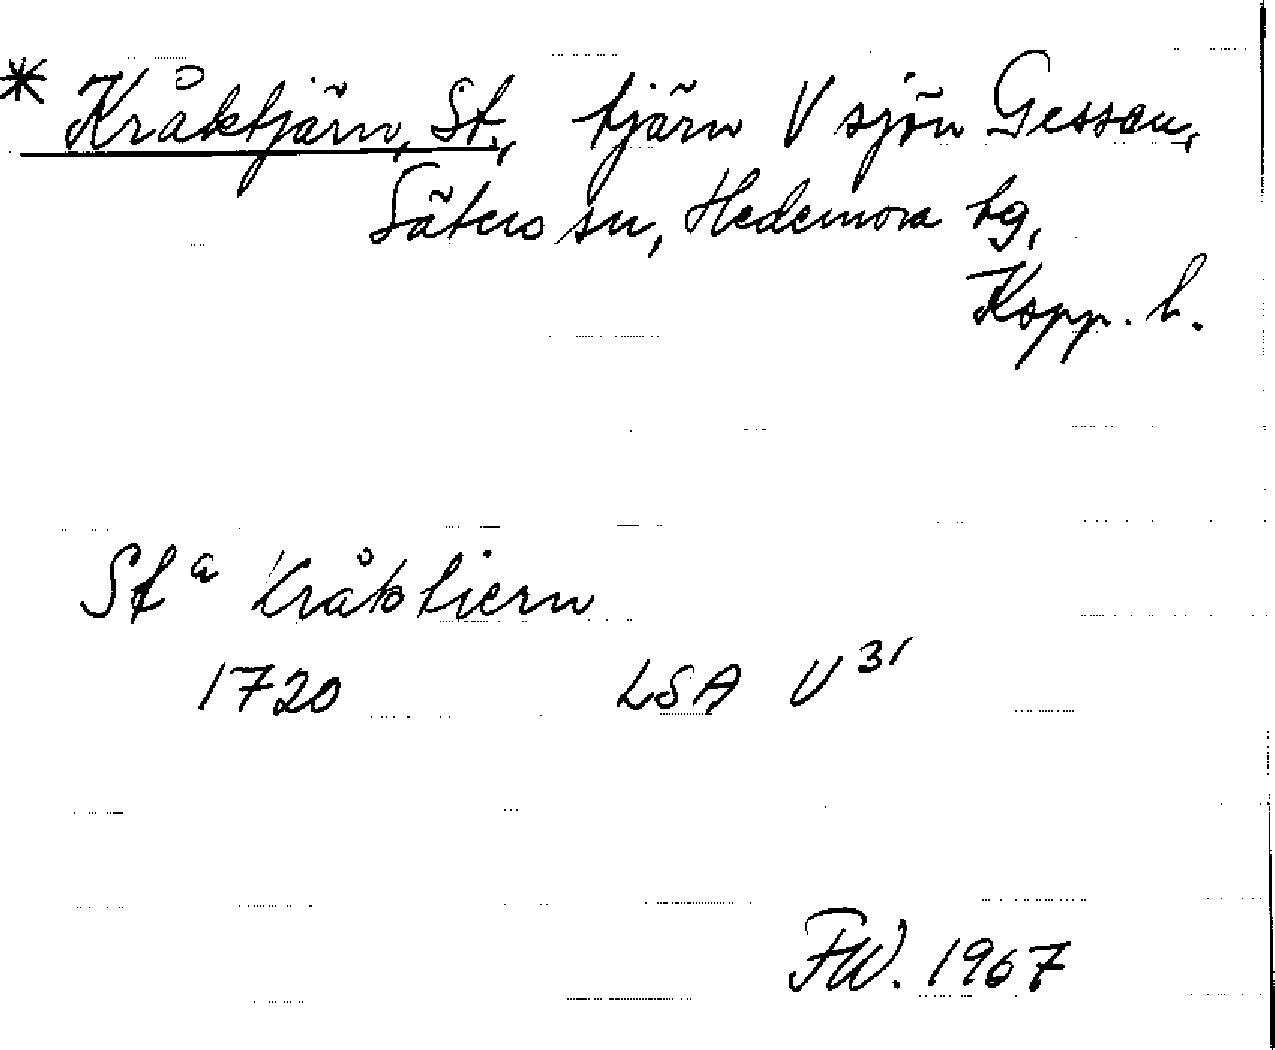 * Kråktjärn, St., tjärn V sjön Gessen,
Säters sn, Hedemora tg,
Kopp. l.
St a Kråktiern
1720 LSA U 31
FW. 1967